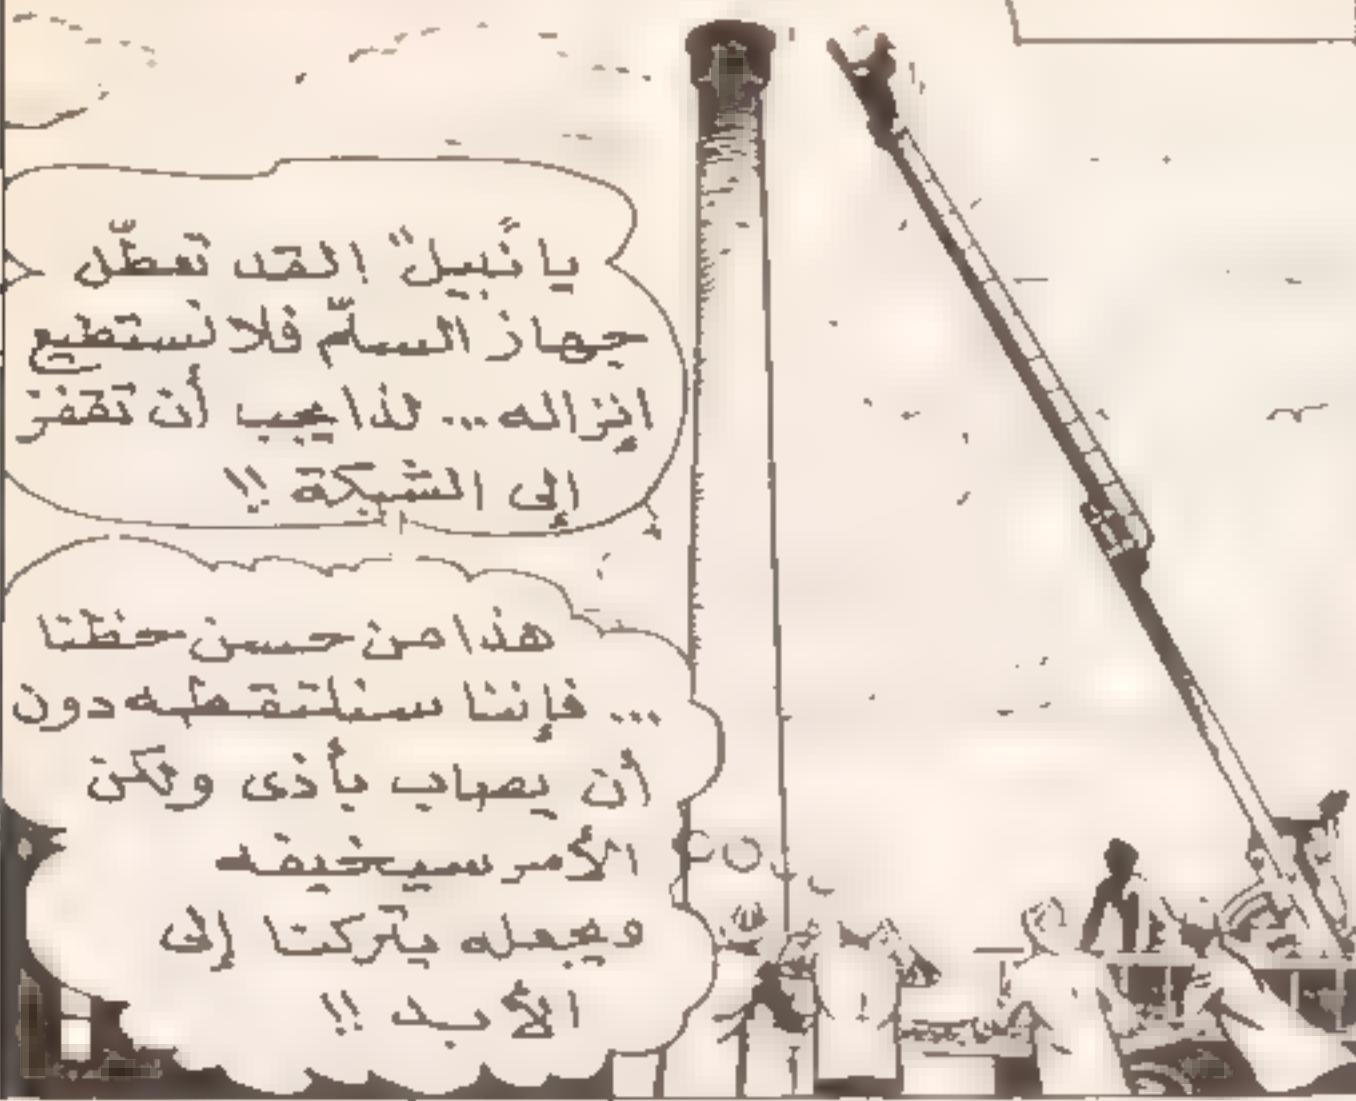 يا "نبيل" ! لقد تعطّل
جهاز السلّم فلا نستطيع
إنزاله ... لذا يجب أن تقفز
إلى الشبكة !!
هذا من حسن حظنا
... فإننا سنلتقطه دون
أن يصاب بأذى ولكن
الأمر سيخيفه
ويجعله يتركنا إلى
الأبد !!